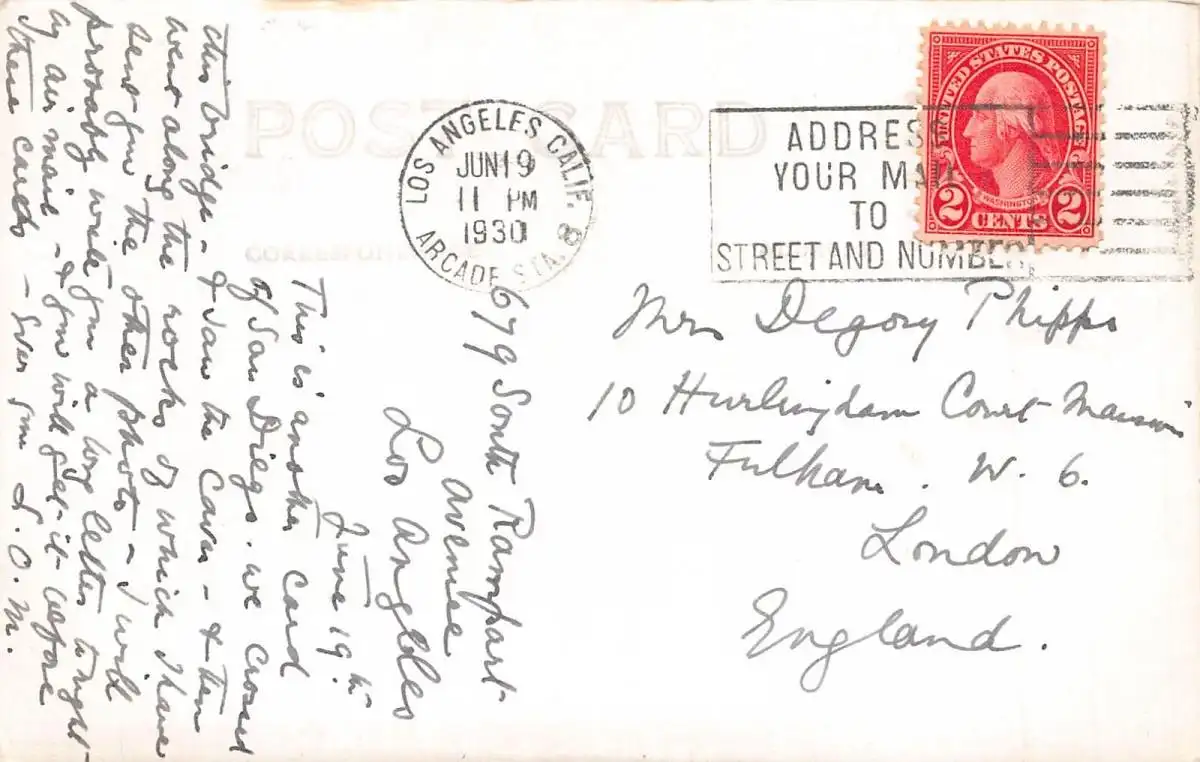 POST CARD
LOS ANGELES CALIF. 8
JUN 19
11 PM
1930
ARCADE STA.
ADDRESS
YOUR MAIL
TO
STREET AND NUMBER
UNITED STATES POSTAGE
WASHINGTON
2 CENTS 2
679 South Rampart
Avenue
Los Angeles
June 19th.
This is another card
of San Diego. We crossed
this bridge - & saw the Caves - & then
went along the rocks of which I have
sent you the other photo - I will
probably write you a long letter tonight -
by air mail - & you will get it before
these cards - Ever your L. O. M.
Mrs Degory Phipps
10 Hurlingham Court Mansions
Fulham. W. 6.
London
England.